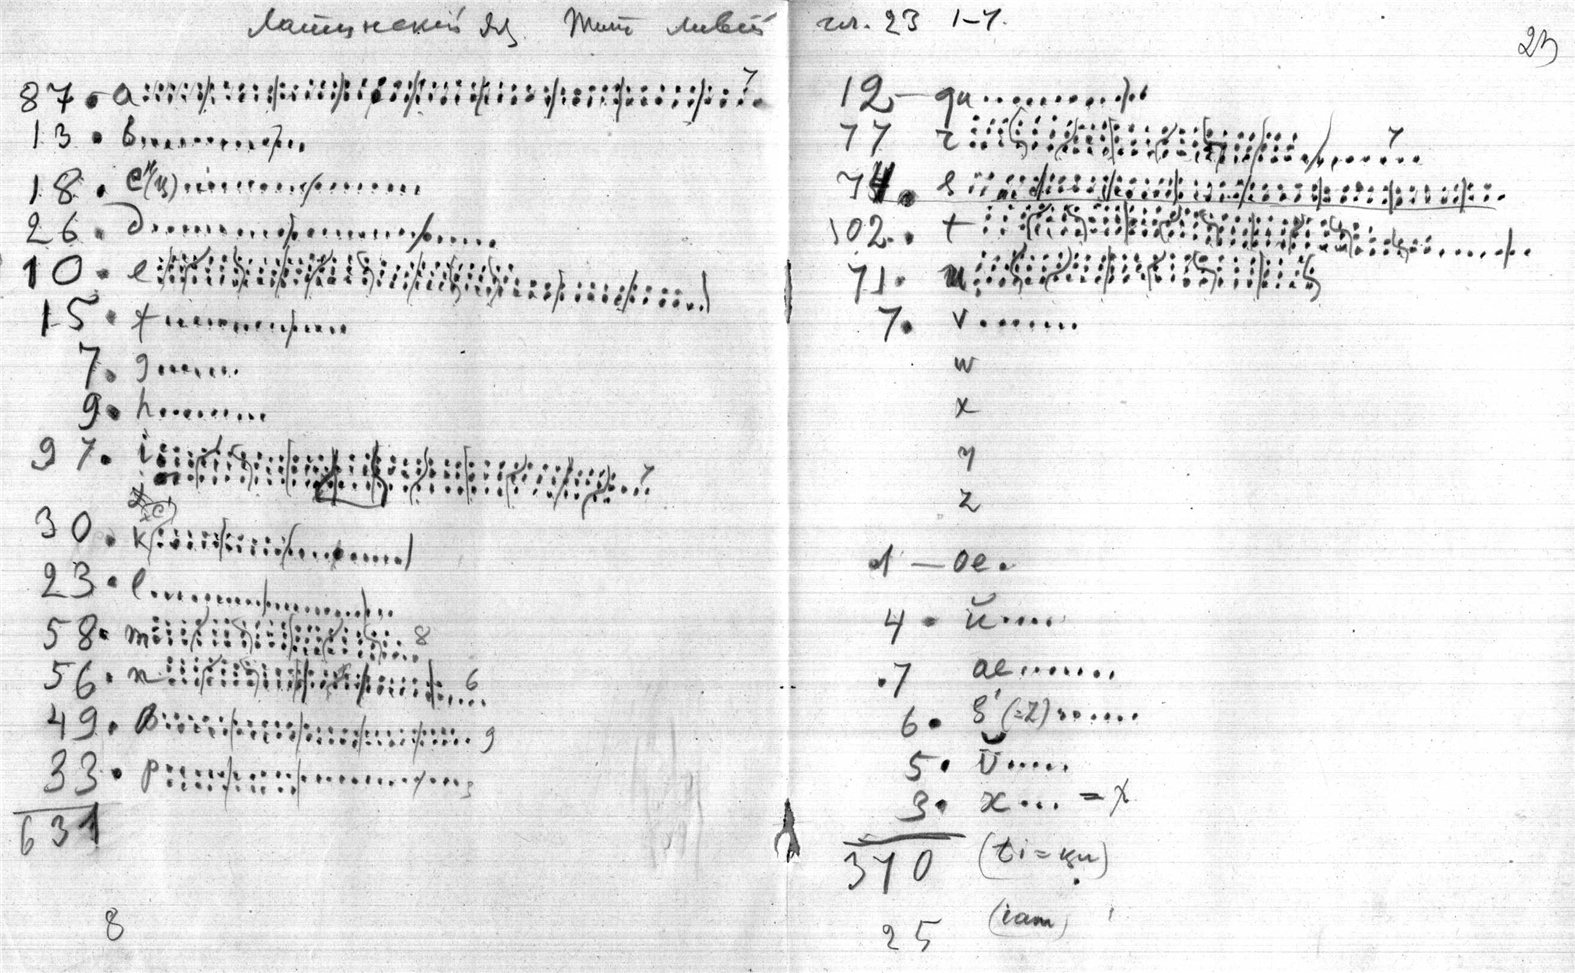 Латинский яз. Тит Ливий гл. 23 1-7.
23
87 • a 7
13 • b
18 • c"(ц)
26 • d
10 • e
15 • f
7 • g
9 • h
97 • i 7
j
(c)
30 • k
23 • l
58 • m 8
56 • n 6
49 • o 9
33 • p 3
631
8
12 — qu
77 r 7
74 • s
102 • t
71 • u
7 • v
w
x
y
z
1 — oe
4 • й
7 ae
6 • s'(=z)
5 • ŭ
3 • x = x
370 (ti=ци)
25 (iam)